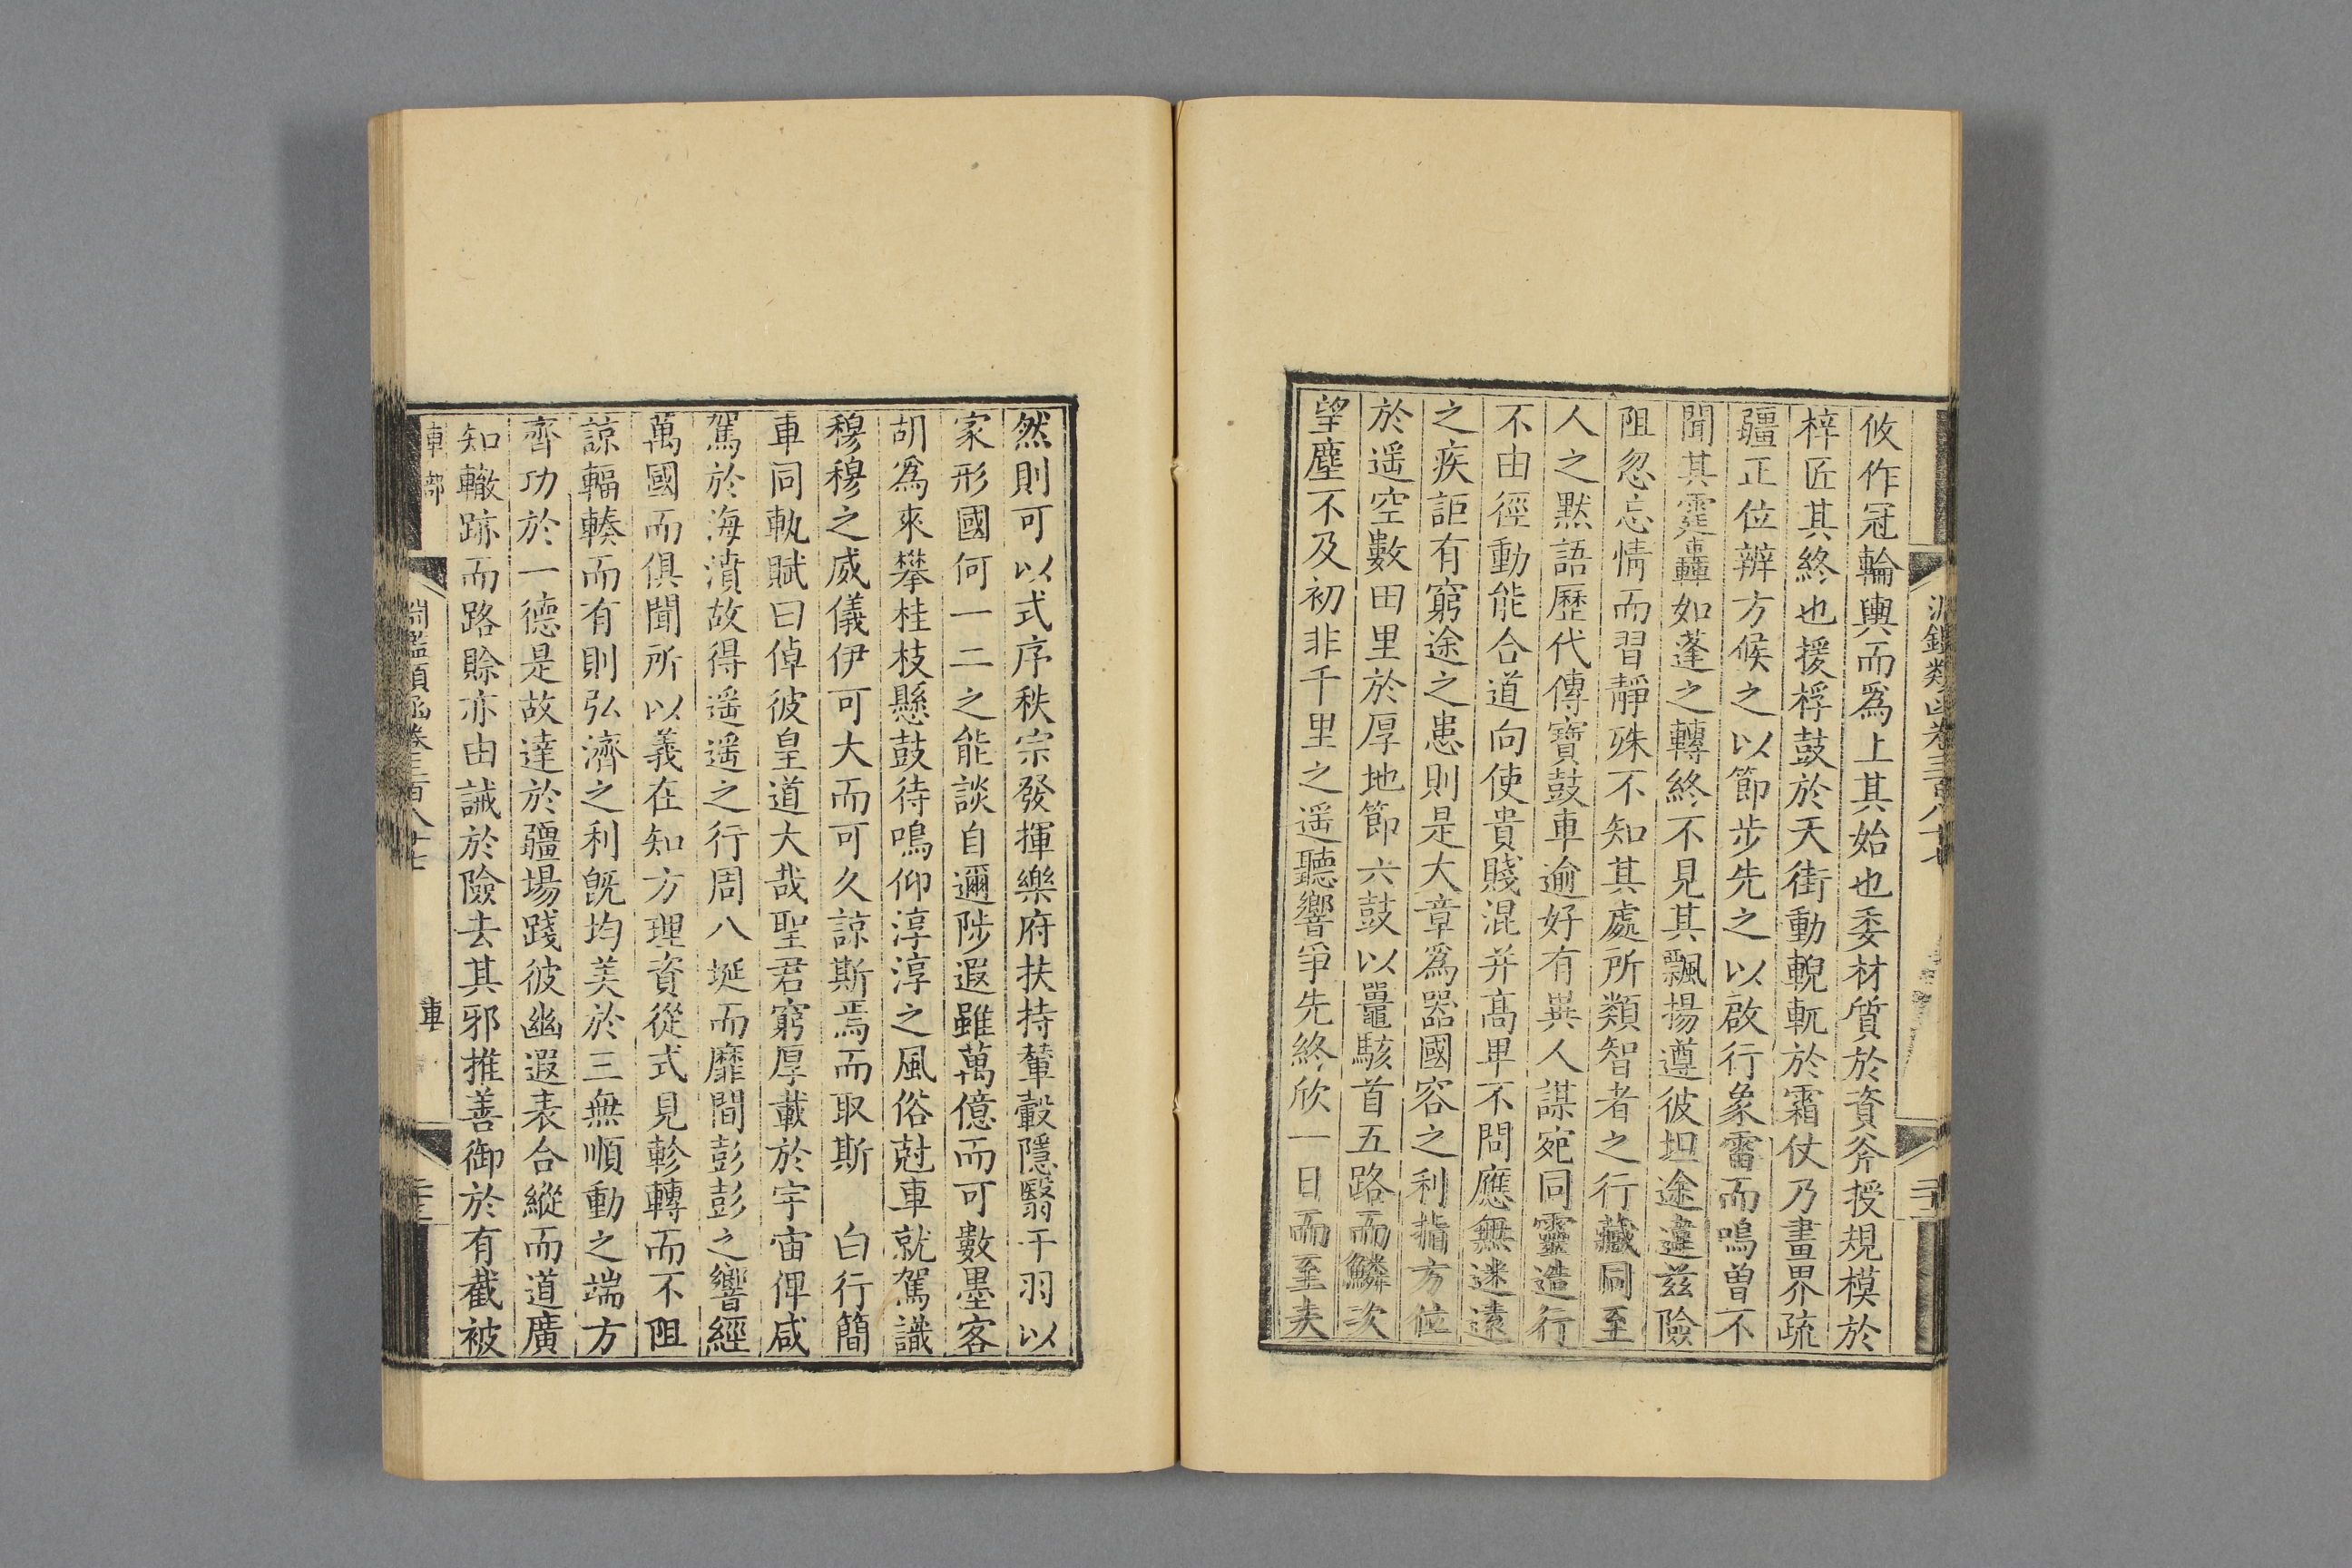 攸作冠輪輿而爲上其始也委材質於資斧授規模於
梓匠其終也援桴鼓於天街動輗軏於霜仗乃畫界疏
疆正位辨方候之以節步先之以啟行象雷而鳴曾不
聞其霆轟如蓬之轉終不見其飄揚遵彼坦途違茲險
阻忽忘情而習靜殊不知其處所類智者之行藏同至
人之默語歷代傳寶鼓車逾好有異人謀宛同靈造行
不由徑動能合道向使貴賤混并髙卑不問應無迷遠
之疾詎有窮途之患則是大章爲器國容之利指方位
於遥空數田里於厚地節六鼓以鼉駭首五路而鱗次
望塵不及初非千里之遥聽響爭先終欣一日而至夫
然則可以式序秩宗發揮樂府扶持輦轂隱翳干羽以
家形國何一二之能談自邇陟遐雖萬億而可數墨客
胡爲來攀桂枝懸鼓待鳴仰淳淳之風俗尅車就駕識
穆穆之威儀伊可大而可久諒斯焉而取斯　白行簡
車同軌賦曰倬彼皇道大哉聖君窮厚載於宇宙俾咸
駕於海濆故得遥遥之行周八埏而靡間彭彭之響經
萬國而俱聞所以義在知方理資從式見軫轉而不阻
諒輻輳而有則弘濟之利旣均美於三無順動之端方
齊功於一德是故達於疆場踐彼幽遐表合縱而道廣
知轍跡而路賒亦由誡於險去其邪推善御於有截被
車部
淵鑑類函卷三百八十七
車